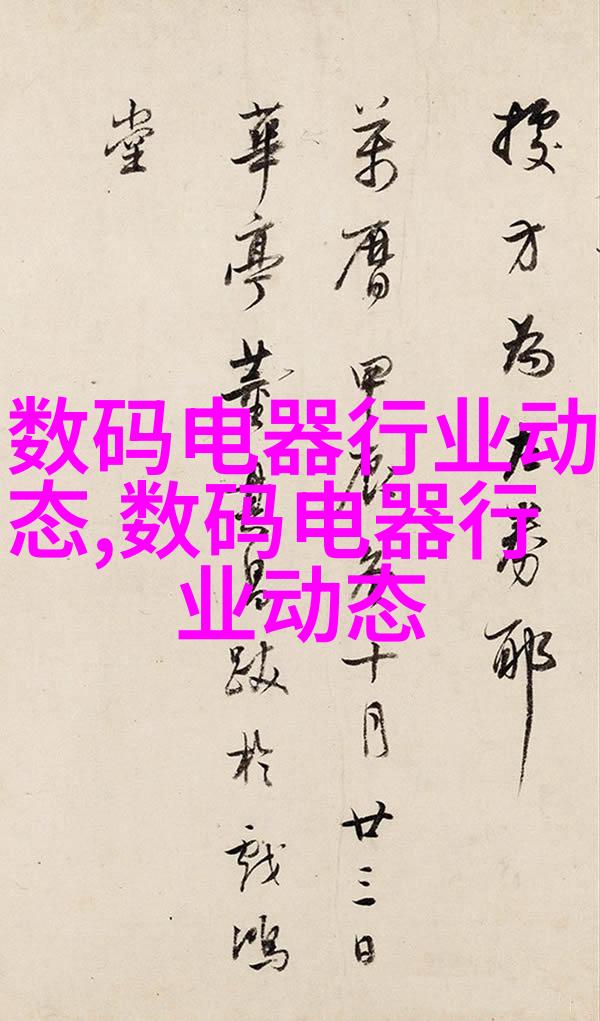 数码电器行业动
态,数码电器行
业动态
方為大耶
萬曆甲辰冬十月廿三日
華亭董其昌跋於戲鴻
堂